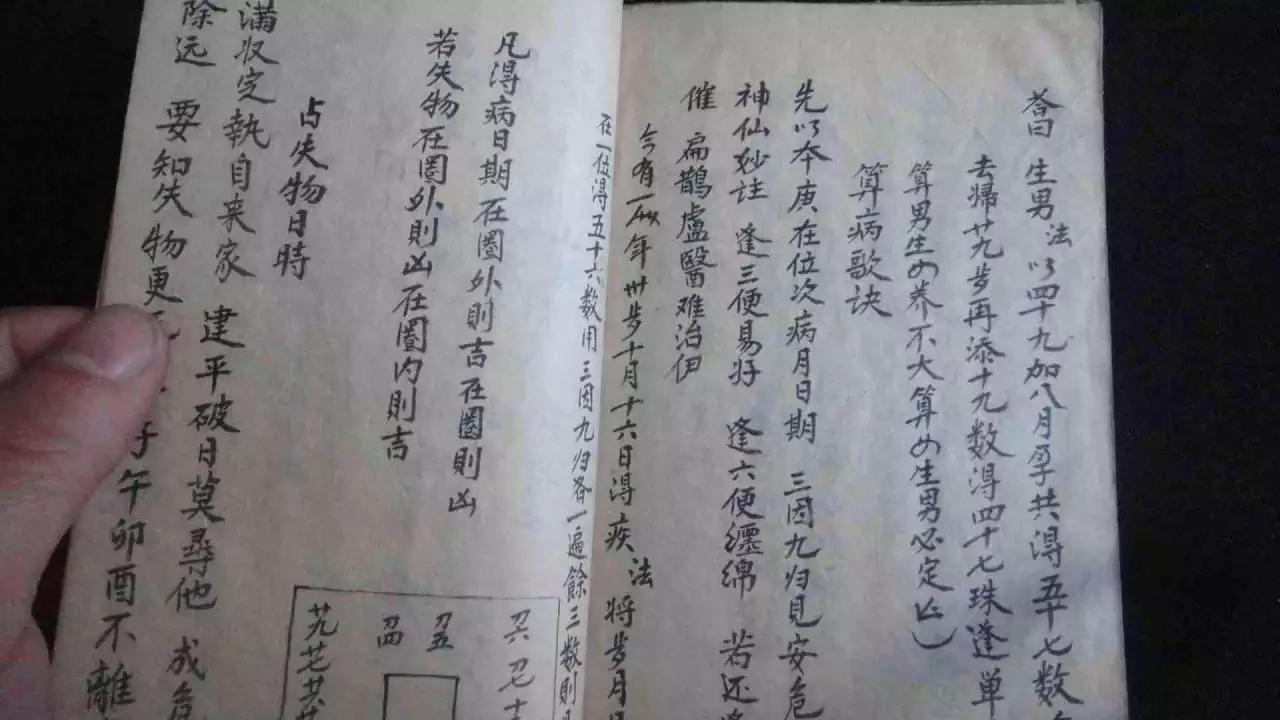 荅曰 生男 法以四十九加八月孕共得五十七数
去歸廿九步再添十九数得四十七珠逢单
算男生必养不大算女生男必定亡
算病歌诀
先以本庚在位次病月日期 三因九归見安危
神仙妙註 逢三便易好 逢六便纏绵 若还
催 扁鵲盧醫难治伊
今有一人年卅歩十月十六日得疾 法将歩月日
在一位得五十六数用三因九归各一遍餘三数則
凡得病日期在圈外則吉在圈則凶
若失物在圈外則凶在圈内則吉
占失物日時
满收定執自来家 建平破日莫尋他 成危
除远 要知失物更 子午卯酉不離
只六 只七
只五
只四
廿九 廿七 廿六